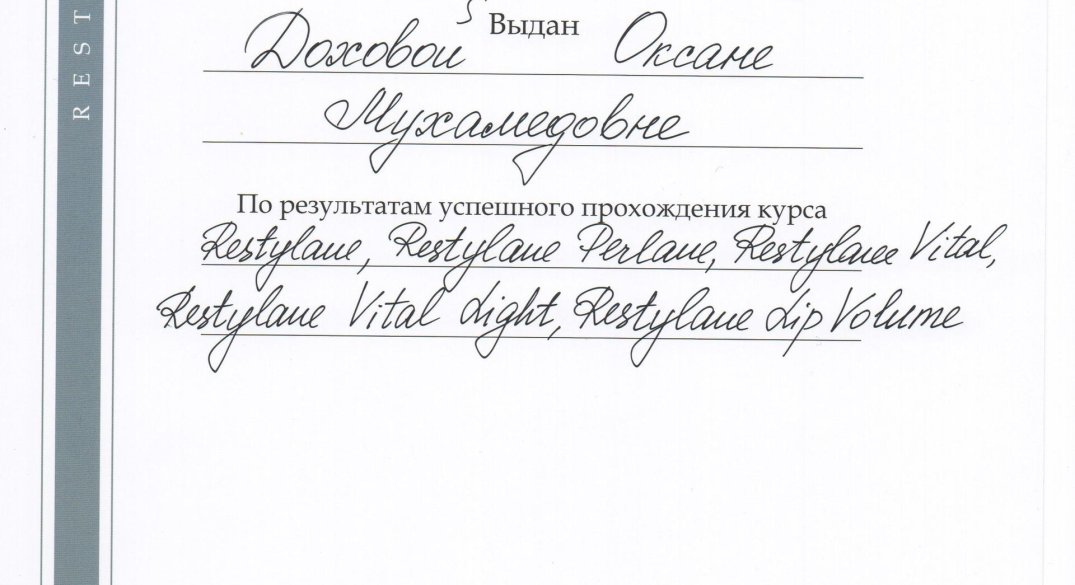 Выдан
Доховой Оксане
Мухамедовне
По результатам успешного прохождения курса
Restylane, Restylane Perlane, Restylane Vital,
Restylane Vital Light, Restylane Lip Volume
REST